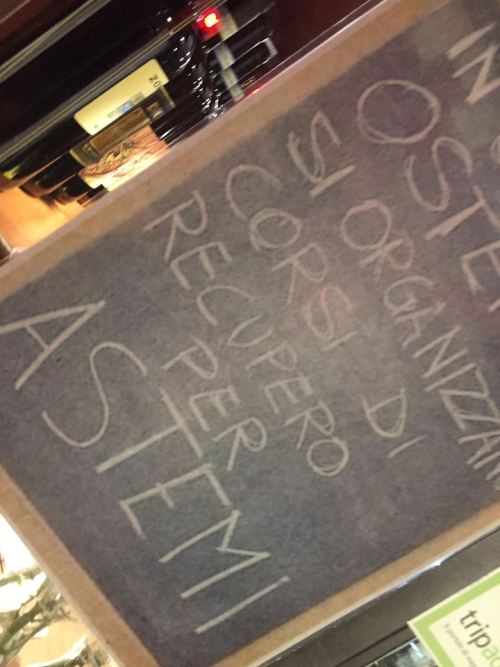 IN
OSTE
SI ORGANIZZAN
CORSI DI
RECUPERO
PER
ASTEMI
20
trip